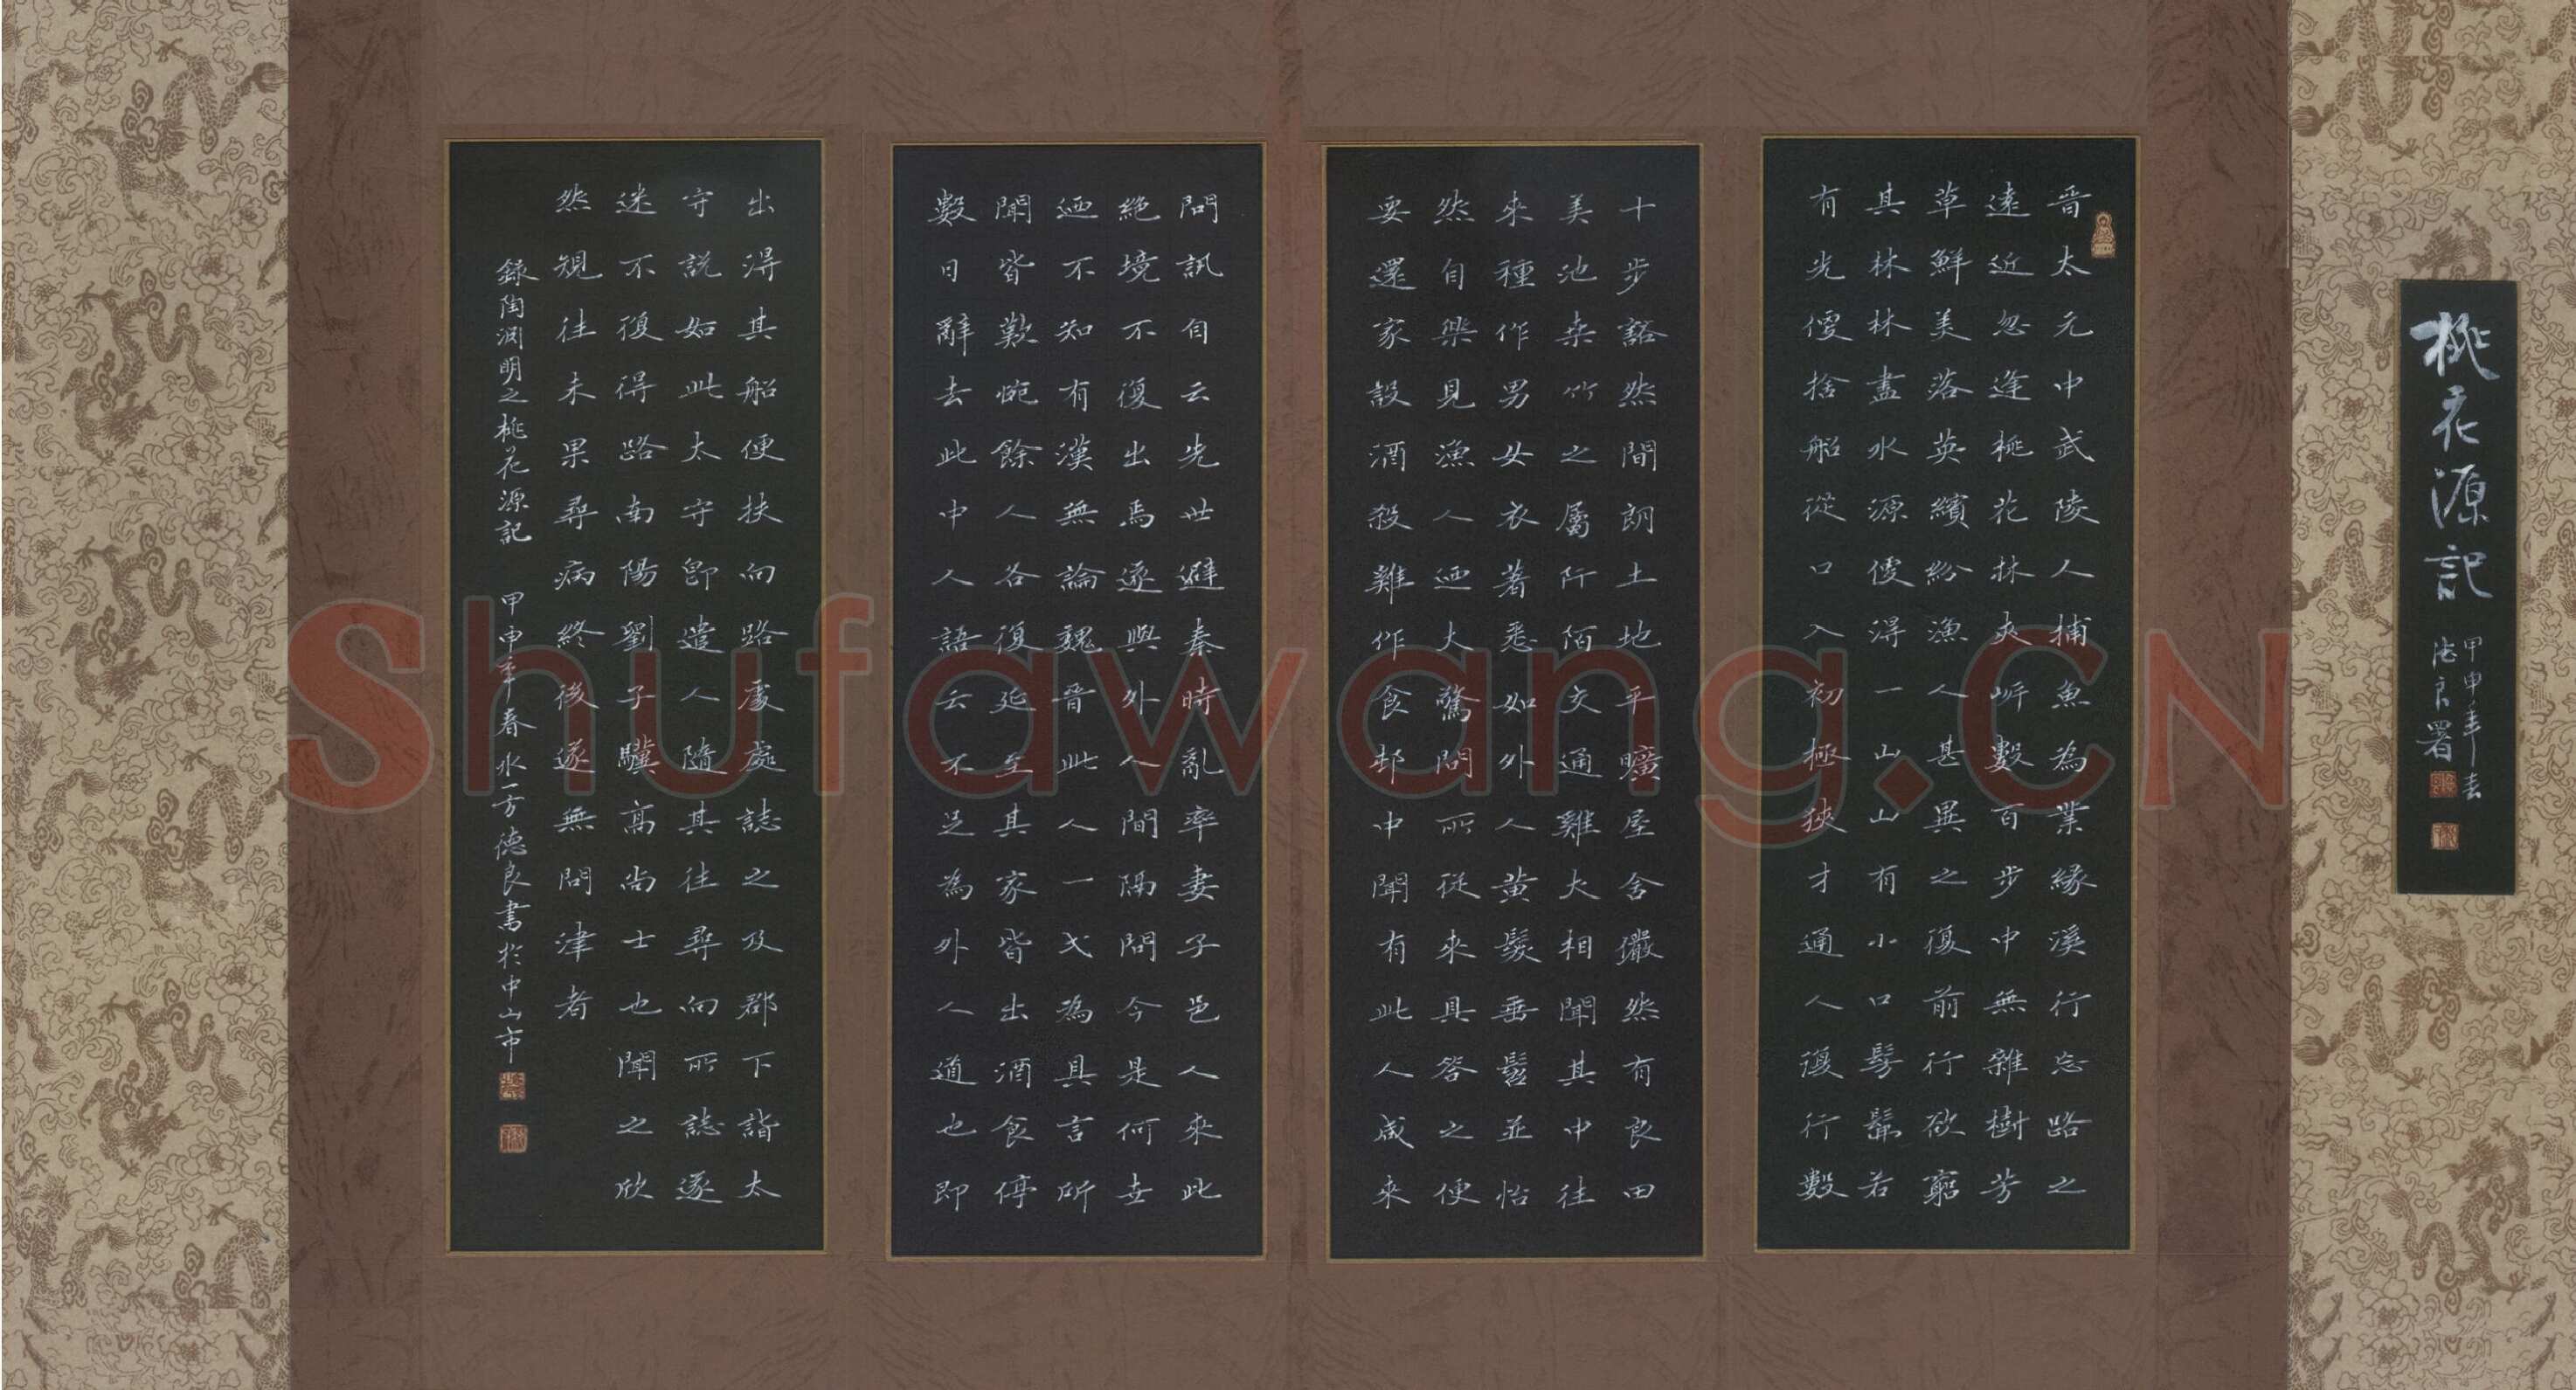 桃花源記
甲申年春
德良署
晉太元中武陵人捕魚為業緣溪行忘路之
遠近忽逢桃花林夾岸數百步中無雜樹芳
草鮮美落英繽紛漁人甚異之復前行欲窮
其林林盡水源便得一山山有小口髣髴若
有光便捨船從口入初極狹才通人復行數
十步豁然間朗土地平曠屋舍儼然有良田
美池桑竹之屬阡陌交通雞犬相聞其中往
來種作男女衣著悉如外人黃髮垂髫並怡
然自樂見漁人迺大驚問所從來具答之便
要還家設酒殺雞作食邨中聞有此人咸來
問訊自云先世避秦時亂率妻子邑人來此
絕境不復出焉遂與外人間隔問今是何世
迺不知有漢無論魏晉此人一弋為具言所
聞皆歎惋餘人各復延至其家皆出酒食停
數日辭去此中人語云不足為外人道也即
出得其船便扶向路處處誌之及郡下詣太
守說如此太守即遣人隨其往尋向所誌遂
迷不復得路南陽劉子驥高尚士也聞之欣
然規往未果尋病終後遂無問津者
錄陶淵明之桃花源記 甲申年春水一方德良書於中山市
Shufawang.CN